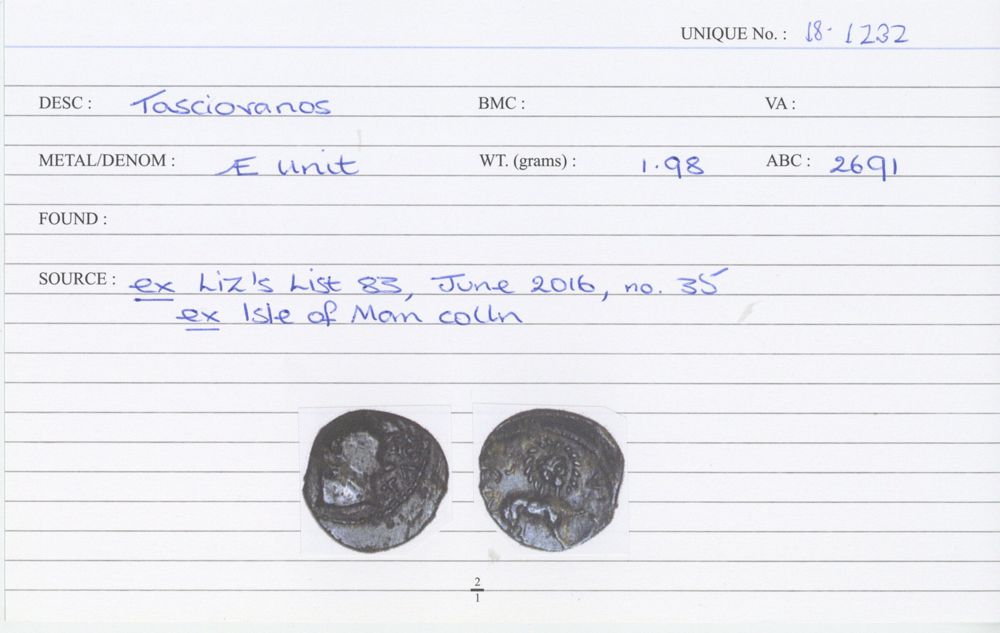 UNIQUE No. : 18-1232
DESC : Tasciovanos BMC : VA :
METAL/DENOM : Æ Unit WT. (grams) : 1.98 ABC : 2691
FOUND :
SOURCE : ex Liz's List 83, June 2016, no. 35
ex Isle of Man colln
2
1